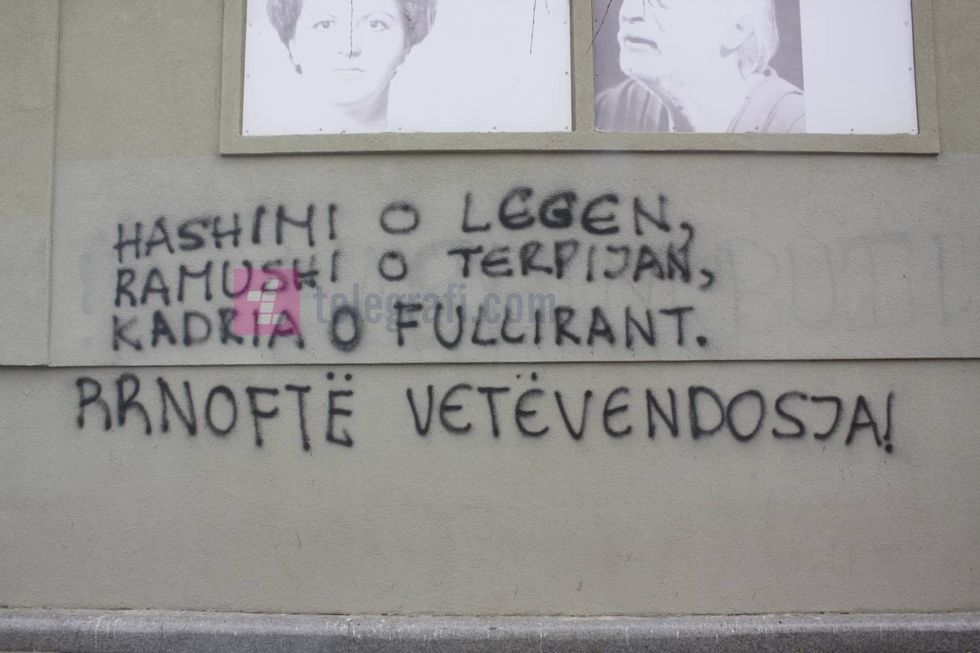 HASHIMI O LEGEN,
RAMUSHI O TERPIJAN,
telegrafi.com
KADRIA O FULLIRANT.
RRNOFTË VETËVENDOSJA!